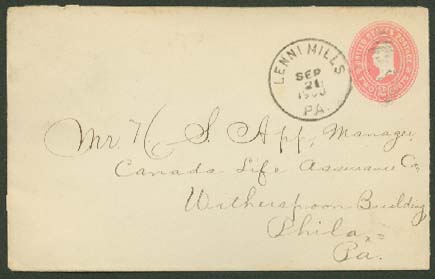 LENNI MILLS
SEP
21
PA.
UNITED STATES POSTAGE
Mr. H. S. App, Manager,
Canada Life Assurance Co,
Witherspoon Building
Phila,
Pa.